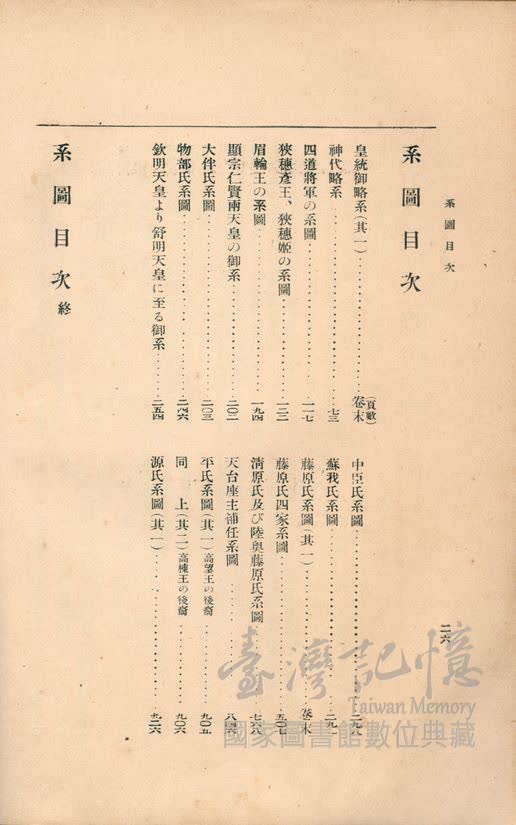 系圖目次
二六
系圖目次
(頁數)
皇統御略系(其一)……卷末
神代略系……七三
四道將軍の系圖……一一七
狹穗彥王、狹穗姬の系圖……一二二
眉輪王の系圖……一九四
顯宗仁賢兩天皇の御系……二〇二
大伴氏系圖……二〇三
物部氏系圖……二四六
欽明天皇より舒明天皇に至る御系……二五四
中臣氏系圖……二九八
蘇我氏系圖……二九一
藤原氏系圖(其一)……卷末
藤原氏四家系圖……五〇七
淸原氏及び陸奧藤原氏系圖……七六八
天台座主補任系圖……八四六
平氏系圖(其一)高望王の後裔……九〇五
同 上(其二)高棟王の後裔……九〇六
源氏系圖(其一)……九二六
系圖目次 終
臺灣記憶
Taiwan Memory
國家圖書館數位典藏